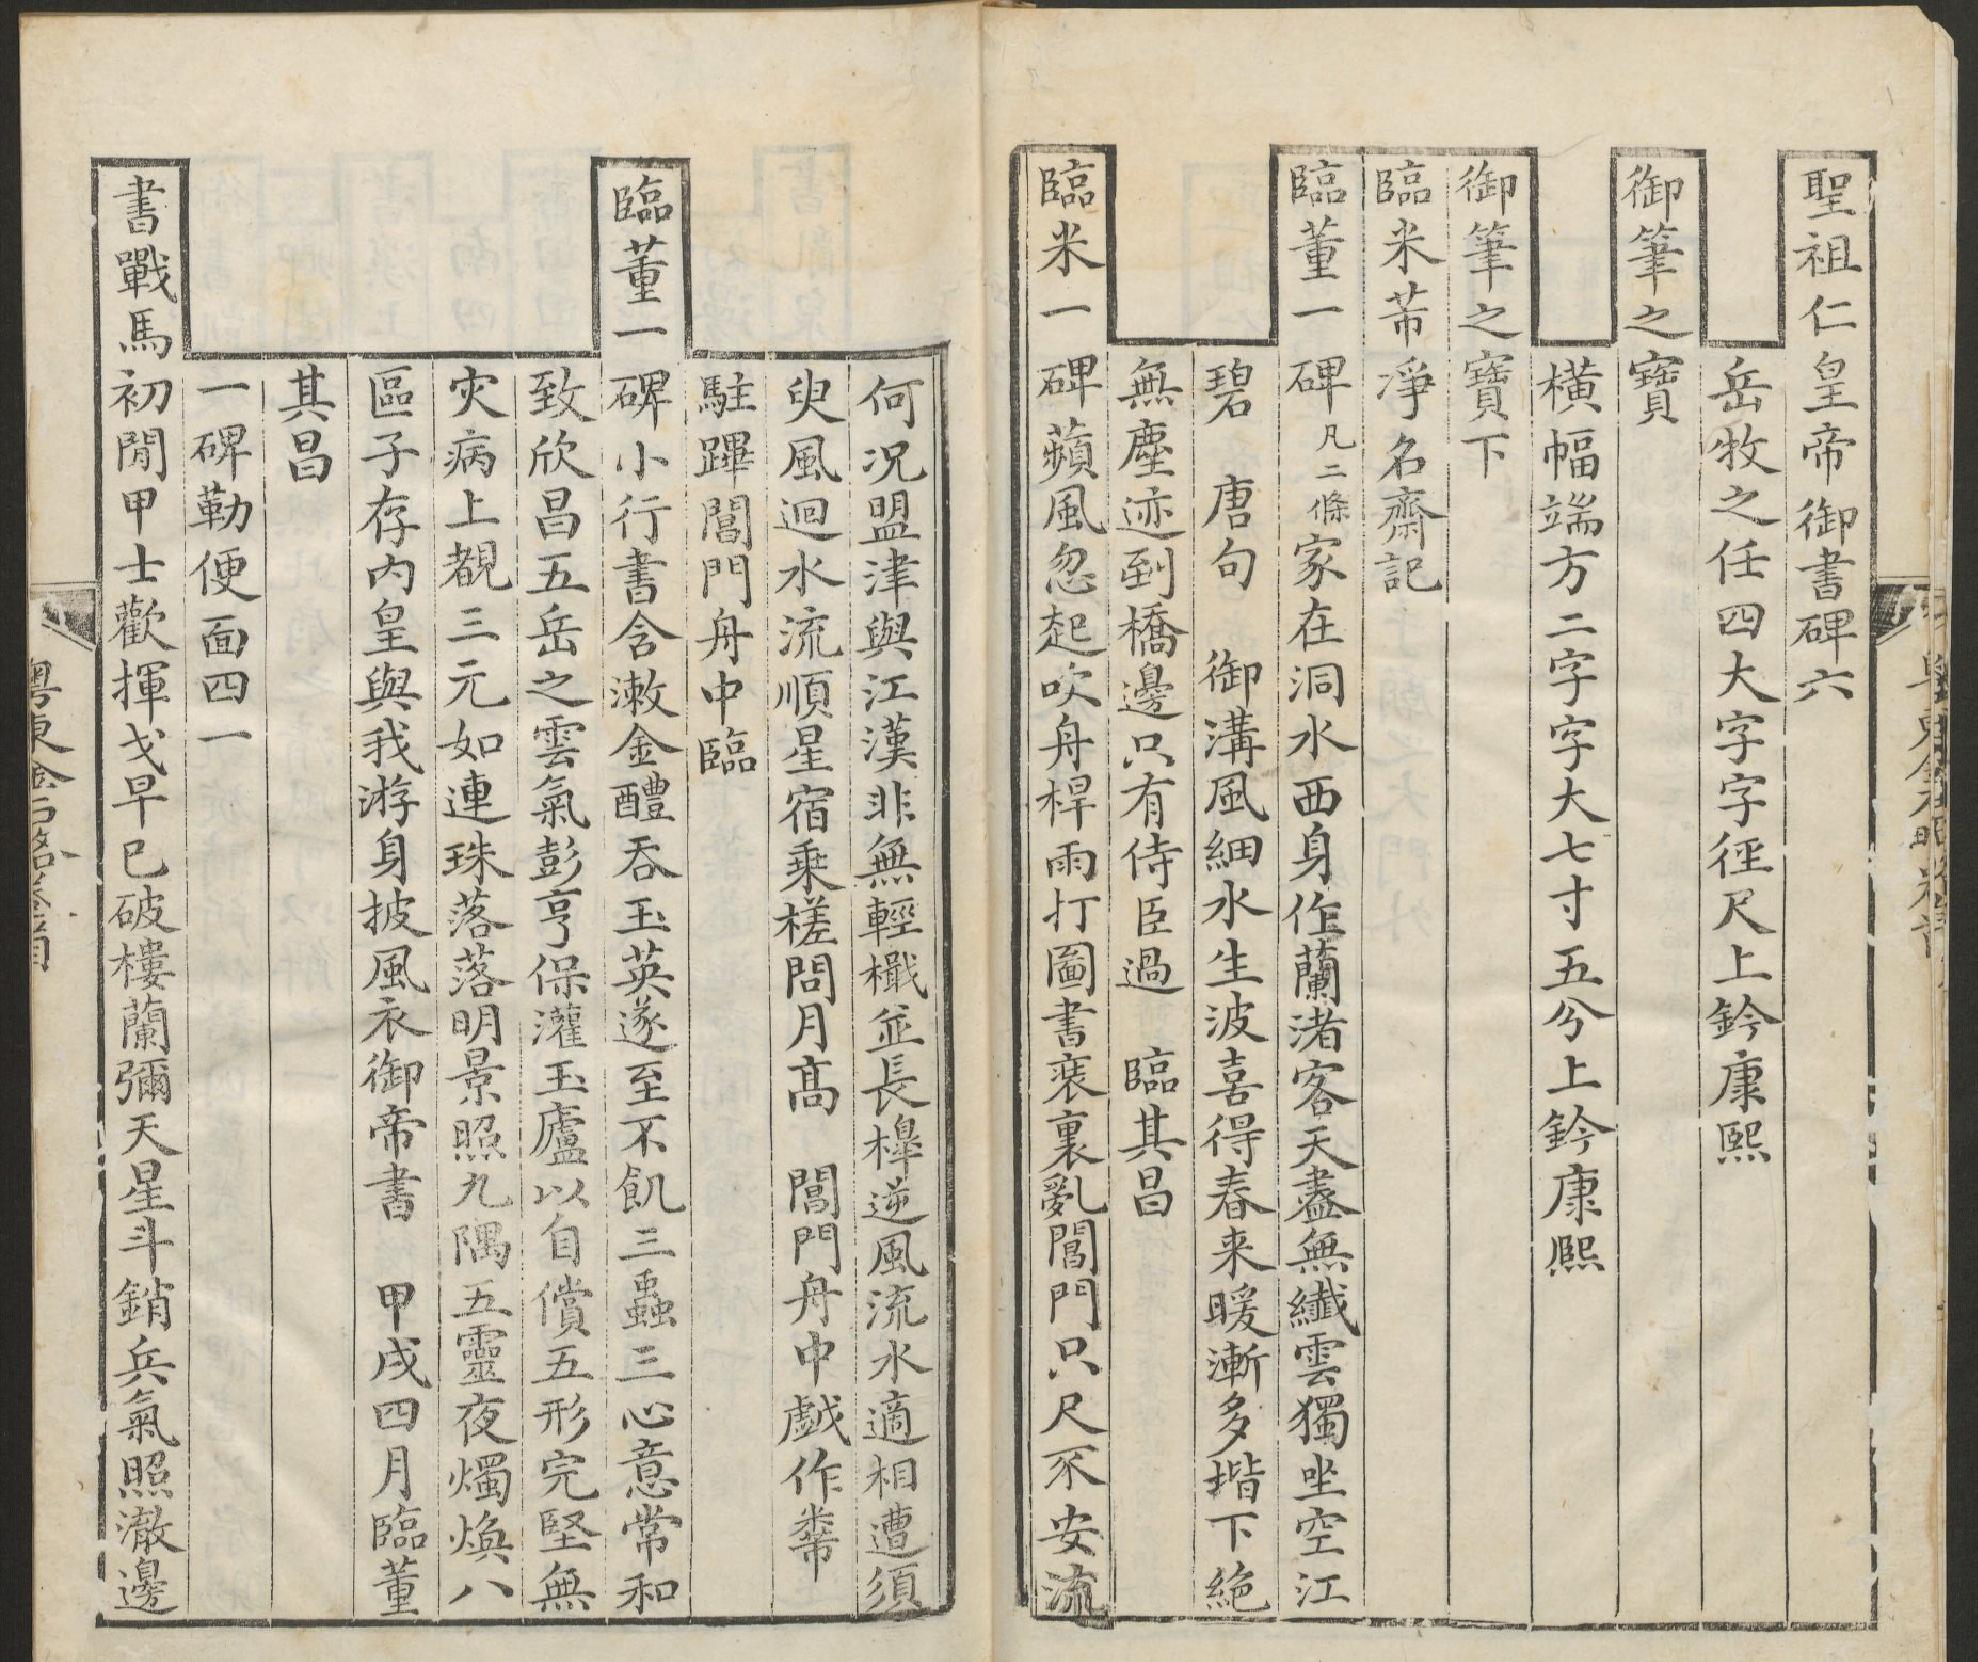 聖祖仁皇帝御書碑六
岳牧之任四大字字徑尺上鈐康熙
御筆之寶
橫幅端方二字字大七寸五分上鈐康熙
御筆之寶下
臨米芾淨名齋記
臨董一碑凡二條家在洞水西身作蘭渚客天盡無纖雲獨坐空江
碧 唐句 御溝風細水生波喜得春来暖漸多堦下絶
無塵迹到橋邊只有侍臣過 臨其昌
臨米一碑蘋風忽起吹舟桿雨打圖書裘裏亂閶門只尺不安流
何况盟津與江漢非無輕檝並長橰逆風流水適相遭須
臾風迴水流順星宿乗槎問月髙 閶門舟中戯作黻
駐蹕閶門舟中臨
臨董一碑小行書含漱金醴吞玉英遂至不飢三蟲三心意常和
致欣昌五岳之雲氣彭亨保灌玉廬以自償五形完堅無
灾病上覩三元如連珠落落明景照九隅五靈夜燭煥八
區子存内皇與我游身披風衣御帝書 甲戌四月臨董
其昌
一碑勒便面四一
書戰馬初閒甲士歡揮戈早已破樓蘭彌天星斗銷兵氣照澈邊
粤東金石略卷首